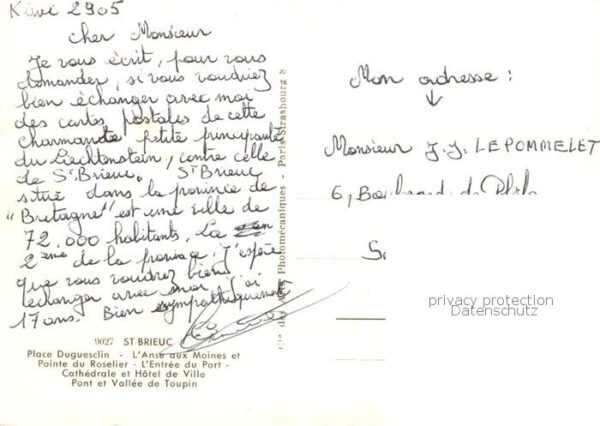 Kiwi 2905
Cher Monsieur
Je vous écrit, pour vous
demander, si vous voudriez
bien échanger avec moi
des cartes postales de cette
charmante petite principauté
du Liechtenstein, contre celle
de St Brieuc. St Brieuc
situé dans la province de
"Bretagne" est une ville de
72.000 habitants. La
2ème de la province. J'espère
que vous voudrez bien
échanger avec moi. J'ai
17 ans. Bien sympathiquement
9027 ST BRIEUC
Place Duguesclin - L'Anse aux Moines et
Pointe du Roselier - L'Entrée du Port -
Cathédrale et Hôtel de Ville
Pont et Vallée de Toupin
Cie des Arts Photomécaniques Paris-Strasbourg S
Mon adresse :
↓
Monsieur J.J. LEPOMMELET
6, Boulevard de
privacy protection
Datenschutz